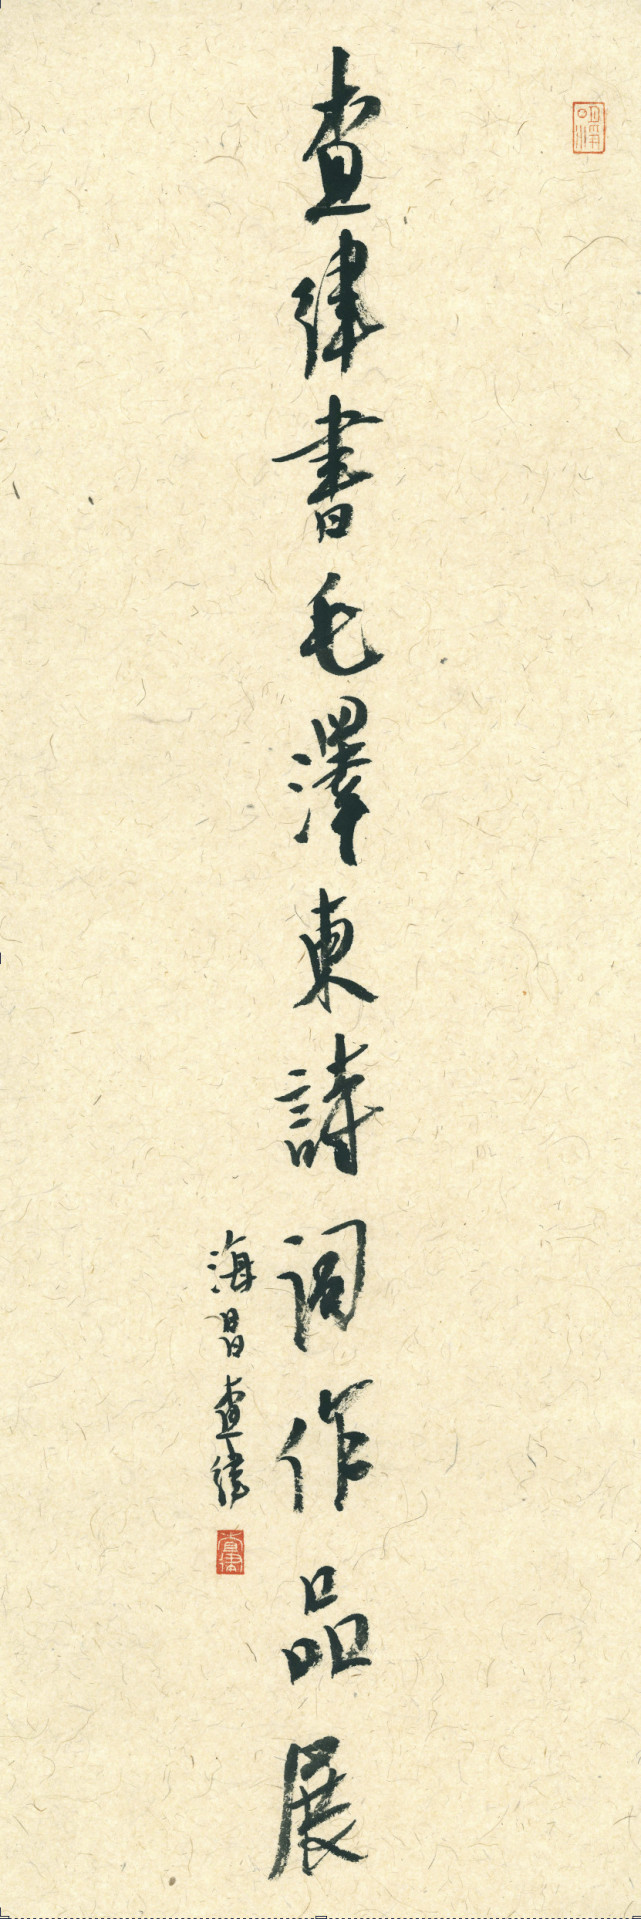 查律書毛澤東詩詞作品展
海昌查律
查律